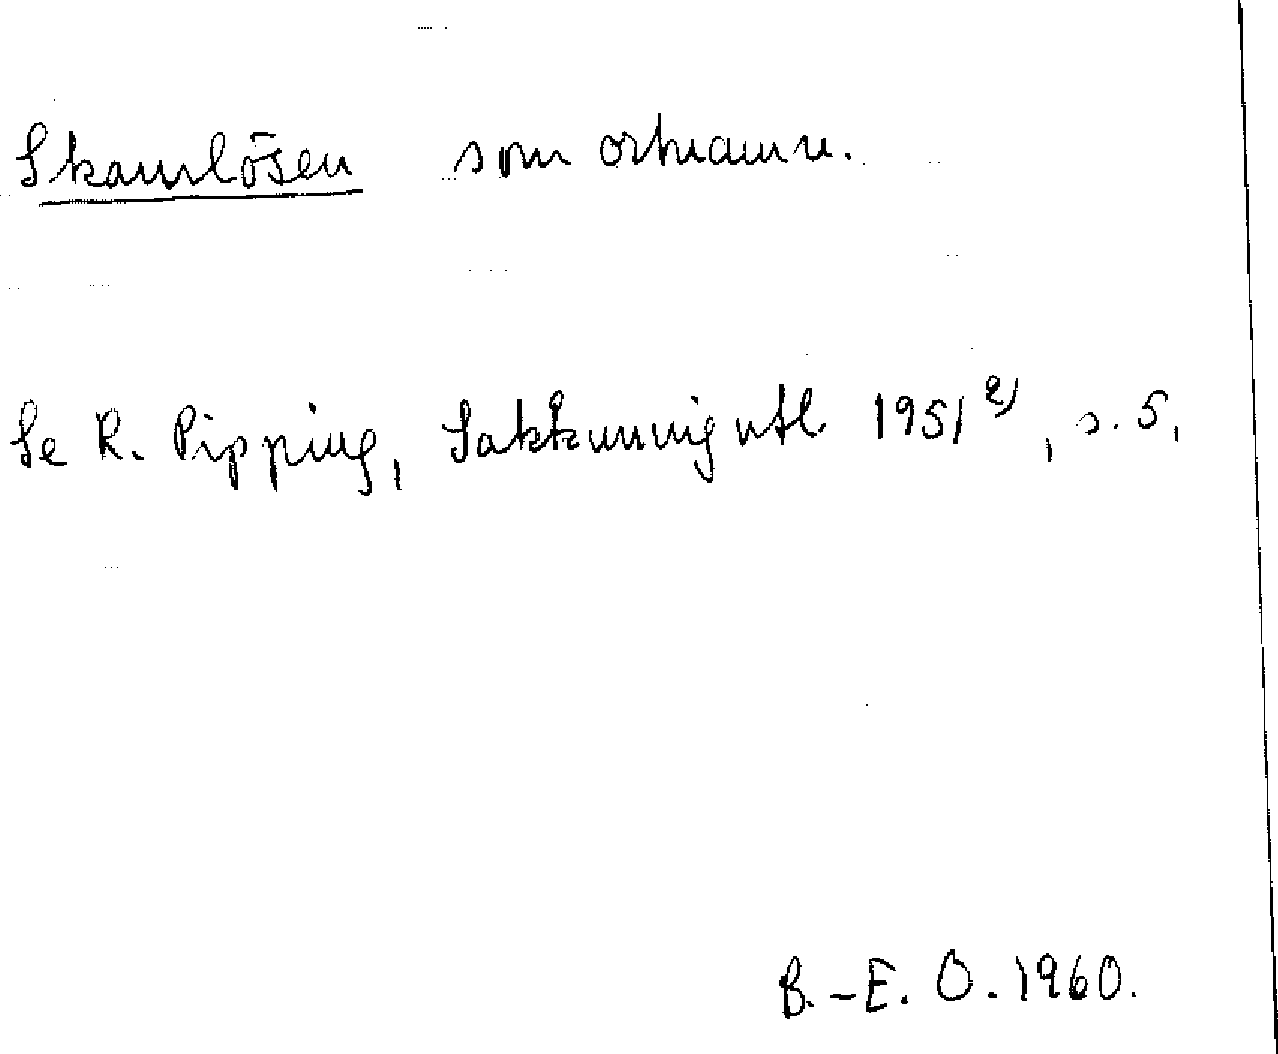 Skamlösen som ortnamn.
Se R. Pipping, Sakkunnigutl. 1951 2), s. 5,
B.-E. O. 1960.